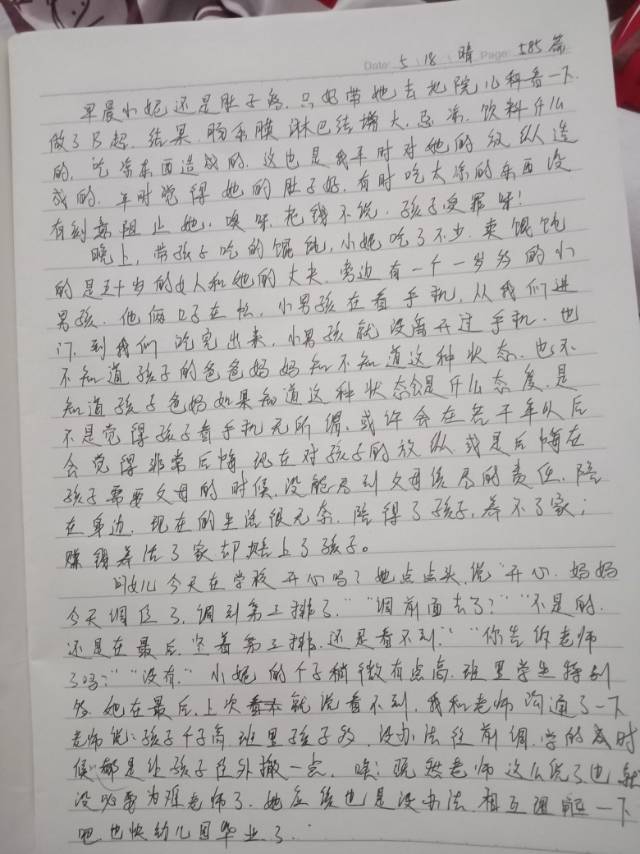 Date: 5.18 晴 Page: 585篇
早晨小妮还是肚子疼,只好带她去地院儿科看一下.
做了B超,结果,肠系膜淋巴结增大,忌冻、饮料什么
的,吃凉东西造成的,这也是我平时对她的放纵造
成的,平时觉得她的肚子好,有时吃太凉的东西没
有刻意阻止她,唉呀,花钱不说,孩子受罪呀!
晚上,带孩子吃的馄饨,小妮吃了不少,卖馄饨
的是五十岁的女人和她的丈夫,旁边有一个一岁多的小
男孩,他俩口子在忙,小男孩在看手机,从我们进
门,到我们吃完出来,小男孩就没离开过手机,也
不知道孩子的爸爸妈妈知不知道这种状态,也不
知道孩子爸妈如果知道这种状态会是什么态度,是
不是觉得孩子看手机无所谓,或许会在若干年以后
会觉得非常后悔现在对孩子的放纵或是后悔在
孩子需要父母的时候,没能尽到父母该尽的责任,陪
在身边,现在的生活很无奈,陪得了孩子,养不了家;
赚钱养活了家却搭上了孩子。
问女儿今天在学校开心吗?她点点头,说"开心,妈妈
今天调位了,调到第三排了.""调前面去了?""不是的,
还是在最后,坐着第三排,还是看不到.""你告诉老师
了吗?""没有."小妮的个子稍微有点高,班里学生特别
多,她在最后,上次就说看不到,我和老师沟通了一下
老师说:孩子个子高,班里孩子多,没办法往前调,学的时
候都是让孩子往外撤一点,唉!既然老师这么说了也就
没必要为难老师了,她应该也是没办法,相互理解一下
吧,也快幼儿园毕业了.